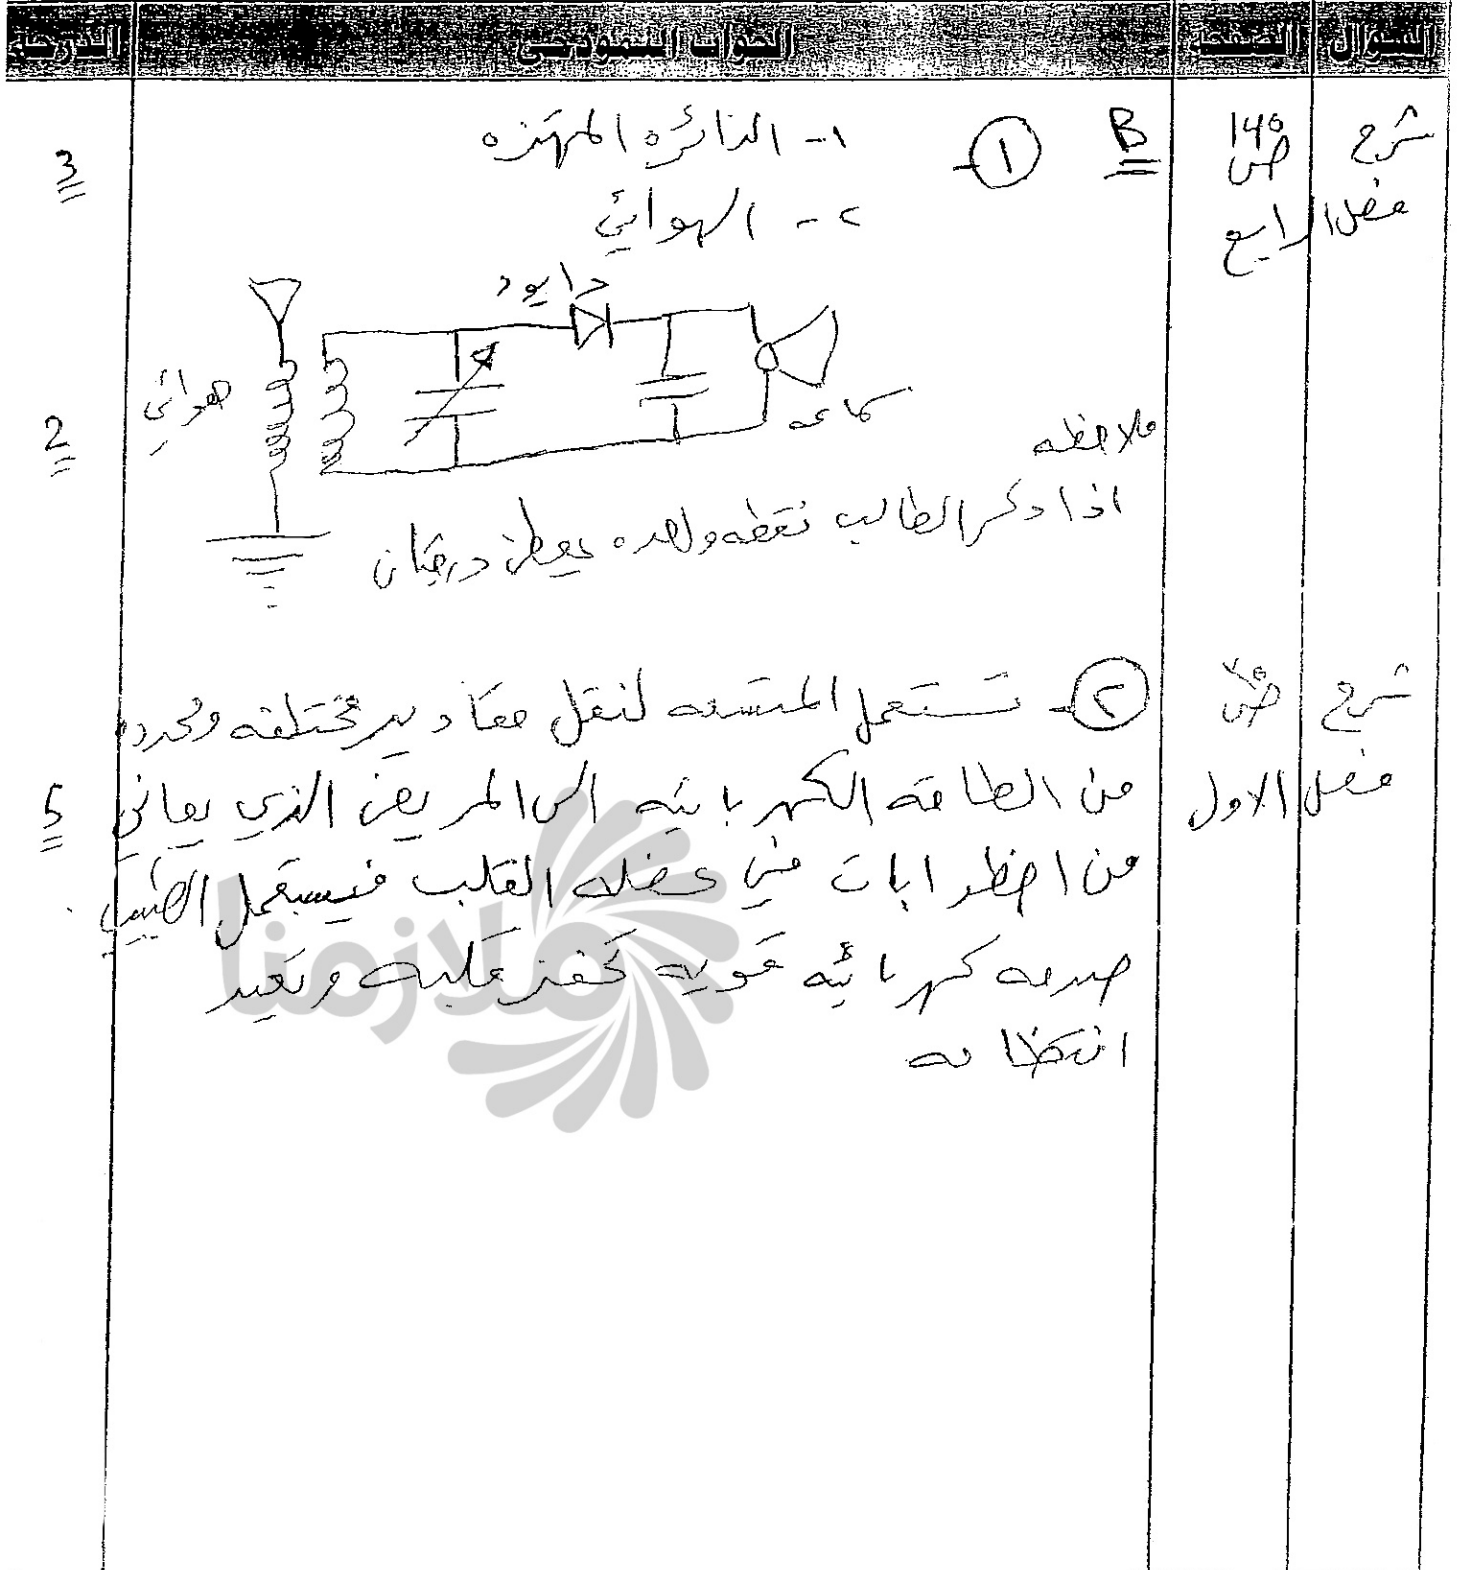 السؤال الصفحة الجواب النموذجي الدرجة
شرح
فصل الرابع
ص
B
١- ١- الدائرة المهتزه
٢- الهوائي
3
دايود
هوائي
سماعه
2
ملاحظه
اذا ذكر الطالب نقطه واحده يعطى درجتان
شرح
فصل الاول
ص
٢- تستعمل المتسعه لنقل مقادير مختلفه ومحدده
من الطاقه الكهربائيه الى المريض الذي يعاني
من اضطرابات في عضله القلب فيستعمل الطبيب
صدمه كهربائيه قويه تحفز قلبه وتعيد
انتظامه
5
ملازمنا